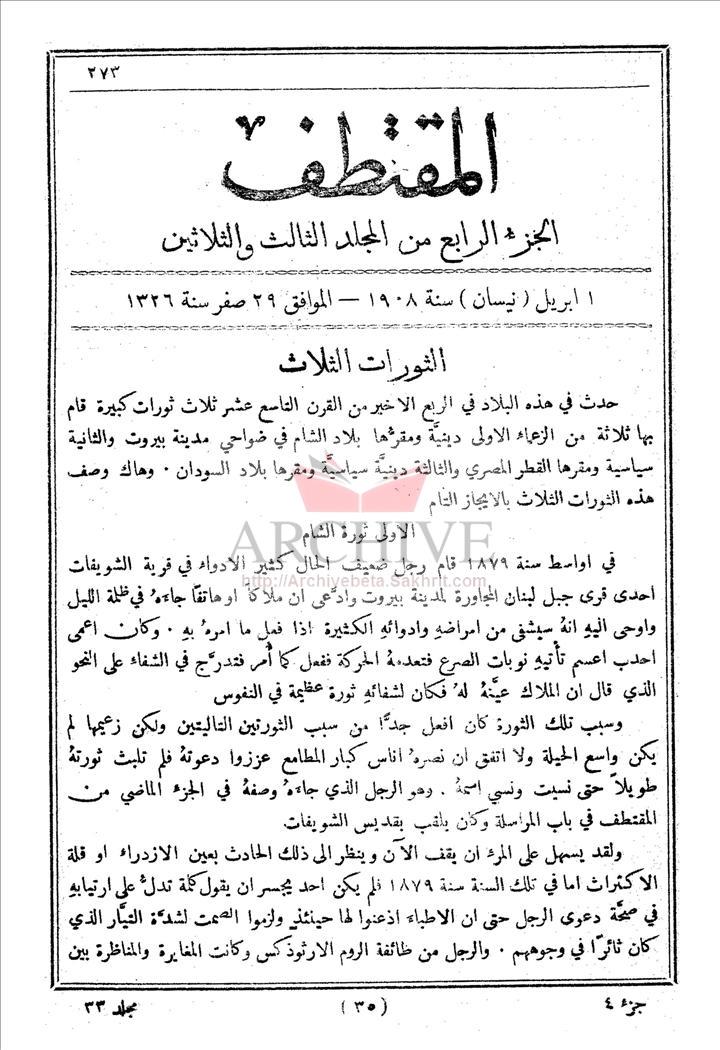 ٢٧٣
المقتطف
الجزء الرابع من المجلد الثالث والثلاثين
١ ابريل ( نيسان ) سنة ١٩٠٨ — الموافق ٢٩ صفر سنة ١٣٢٦
الثورات الثلاث
حدث في هذه البلاد في الربع الاخير من القرن التاسع عشر ثلاث ثورات كبيرة قام
بها ثلاثة من الزعماء الاولى دينيَّة ومقرُّها بلاد الشام في ضواحي مدينة بيروت والثانية
سياسية ومقرها القطر المصري والثالثة دينيَّة سياسيَّة ومقرها بلاد السودان . وهاك وصف
هذه الثورات الثلاث بالايجاز التام
ARCHIVE
الاولى ثورة الشام
في اواسط سنة ١٨٧٩ قام رجل ضعيف الحال كثير الادواء في قرية الشويفات
http://Archivebeta.Sakhrit.com
احدى قرى جبل لبنان المجاورة لمدينة بيروت وادَّعى ان ملاكًا او هاتفًا جاءهُ في ظلمة الليل
واوحى اليهِ انهُ سيشفى من امراضهِ وادوائهِ الكثيرة اذا فعل ما امره بهِ . وكان اعمى
احدب اعسم تأتيهِ نوبات الصرع فتعدمهُ الحركة ففعل كما أُمر فتدرَّج في الشفاء على النحو
الذي قال ان الملاك عيَّنهُ لهُ فكان لشفائهِ ثورة عظيمة في النفوس
وسبب تلك الثورة كان افعل جدًّا من سبب الثورتين التاليتين ولكن زعيمها لم
يكن واسع الحيلة ولا اتفق ان نصرهُ اناس كبار المطامع عززوا دعوتهُ فلم تلبث ثورتهُ
طويلاً حتى نسيت ونسي اسمهُ . وهو الرجل الذي جاءهُ وصفهُ في الجزء الماضي من
المقتطف في باب المراسلة وكان يلقب بقديس الشويفات
ولقد يسهل على المرء ان يقف الآن وينظر الى ذلك الحادث بعين الازدراء او قلة
الاكتراث اما في تلك السنة سنة ١٨٧٩ فلم يكن احد يجسر ان يقول كلمة تدلُّ على ارتيابهِ
في صحَّة دعوى الرجل حتى ان الاطباء اذعنوا لها حينئذٍ ولزموا الصمت لشدَّة التيَّار الذي
كان ثائرًا في وجوههم . والرجل من طائفة الروم الارثوذكس وكانت المغايرة والمناظرة بين
جزء ٤
( ٣٥ )
مجلد ٣٣